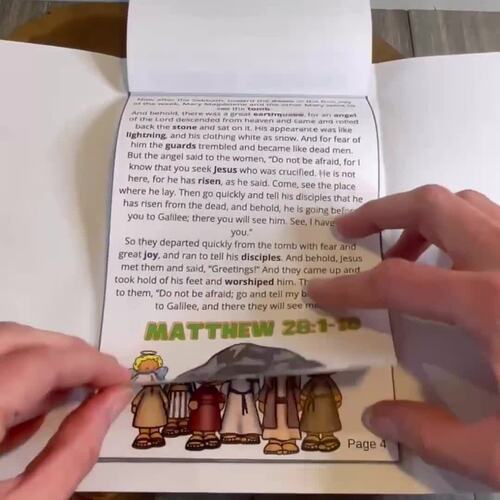 Now after the Sabbath, toward the dawn of the first day
of the week, Mary Magdalene and the other Mary went to
see the tomb.
And behold, there was a great earthquake, for an angel
of the Lord descended from heaven and came and rolled
back the stone and sat on it. His appearance was like
lightning, and his clothing white as snow. And for fear of
him the guards trembled and became like dead men.
But the angel said to the women, "Do not be afraid, for I
know that you seek Jesus who was crucified. He is not
here, for he has risen, as he said. Come, see the place
where he lay. Then go quickly and tell his disciples that he
has risen from the dead, and behold, he is going before
you to Galilee; there you will see him. See, I have
you."
So they departed quickly from the tomb with fear and
great joy, and ran to tell his disciples. And behold, Jesus
met them and said, "Greetings!" And they came up and
took hold of his feet and worshiped him.
to them, "Do not be afraid; go and tell my
to Galilee, and there they will see
MATTHEW 28:1-10
Page 4